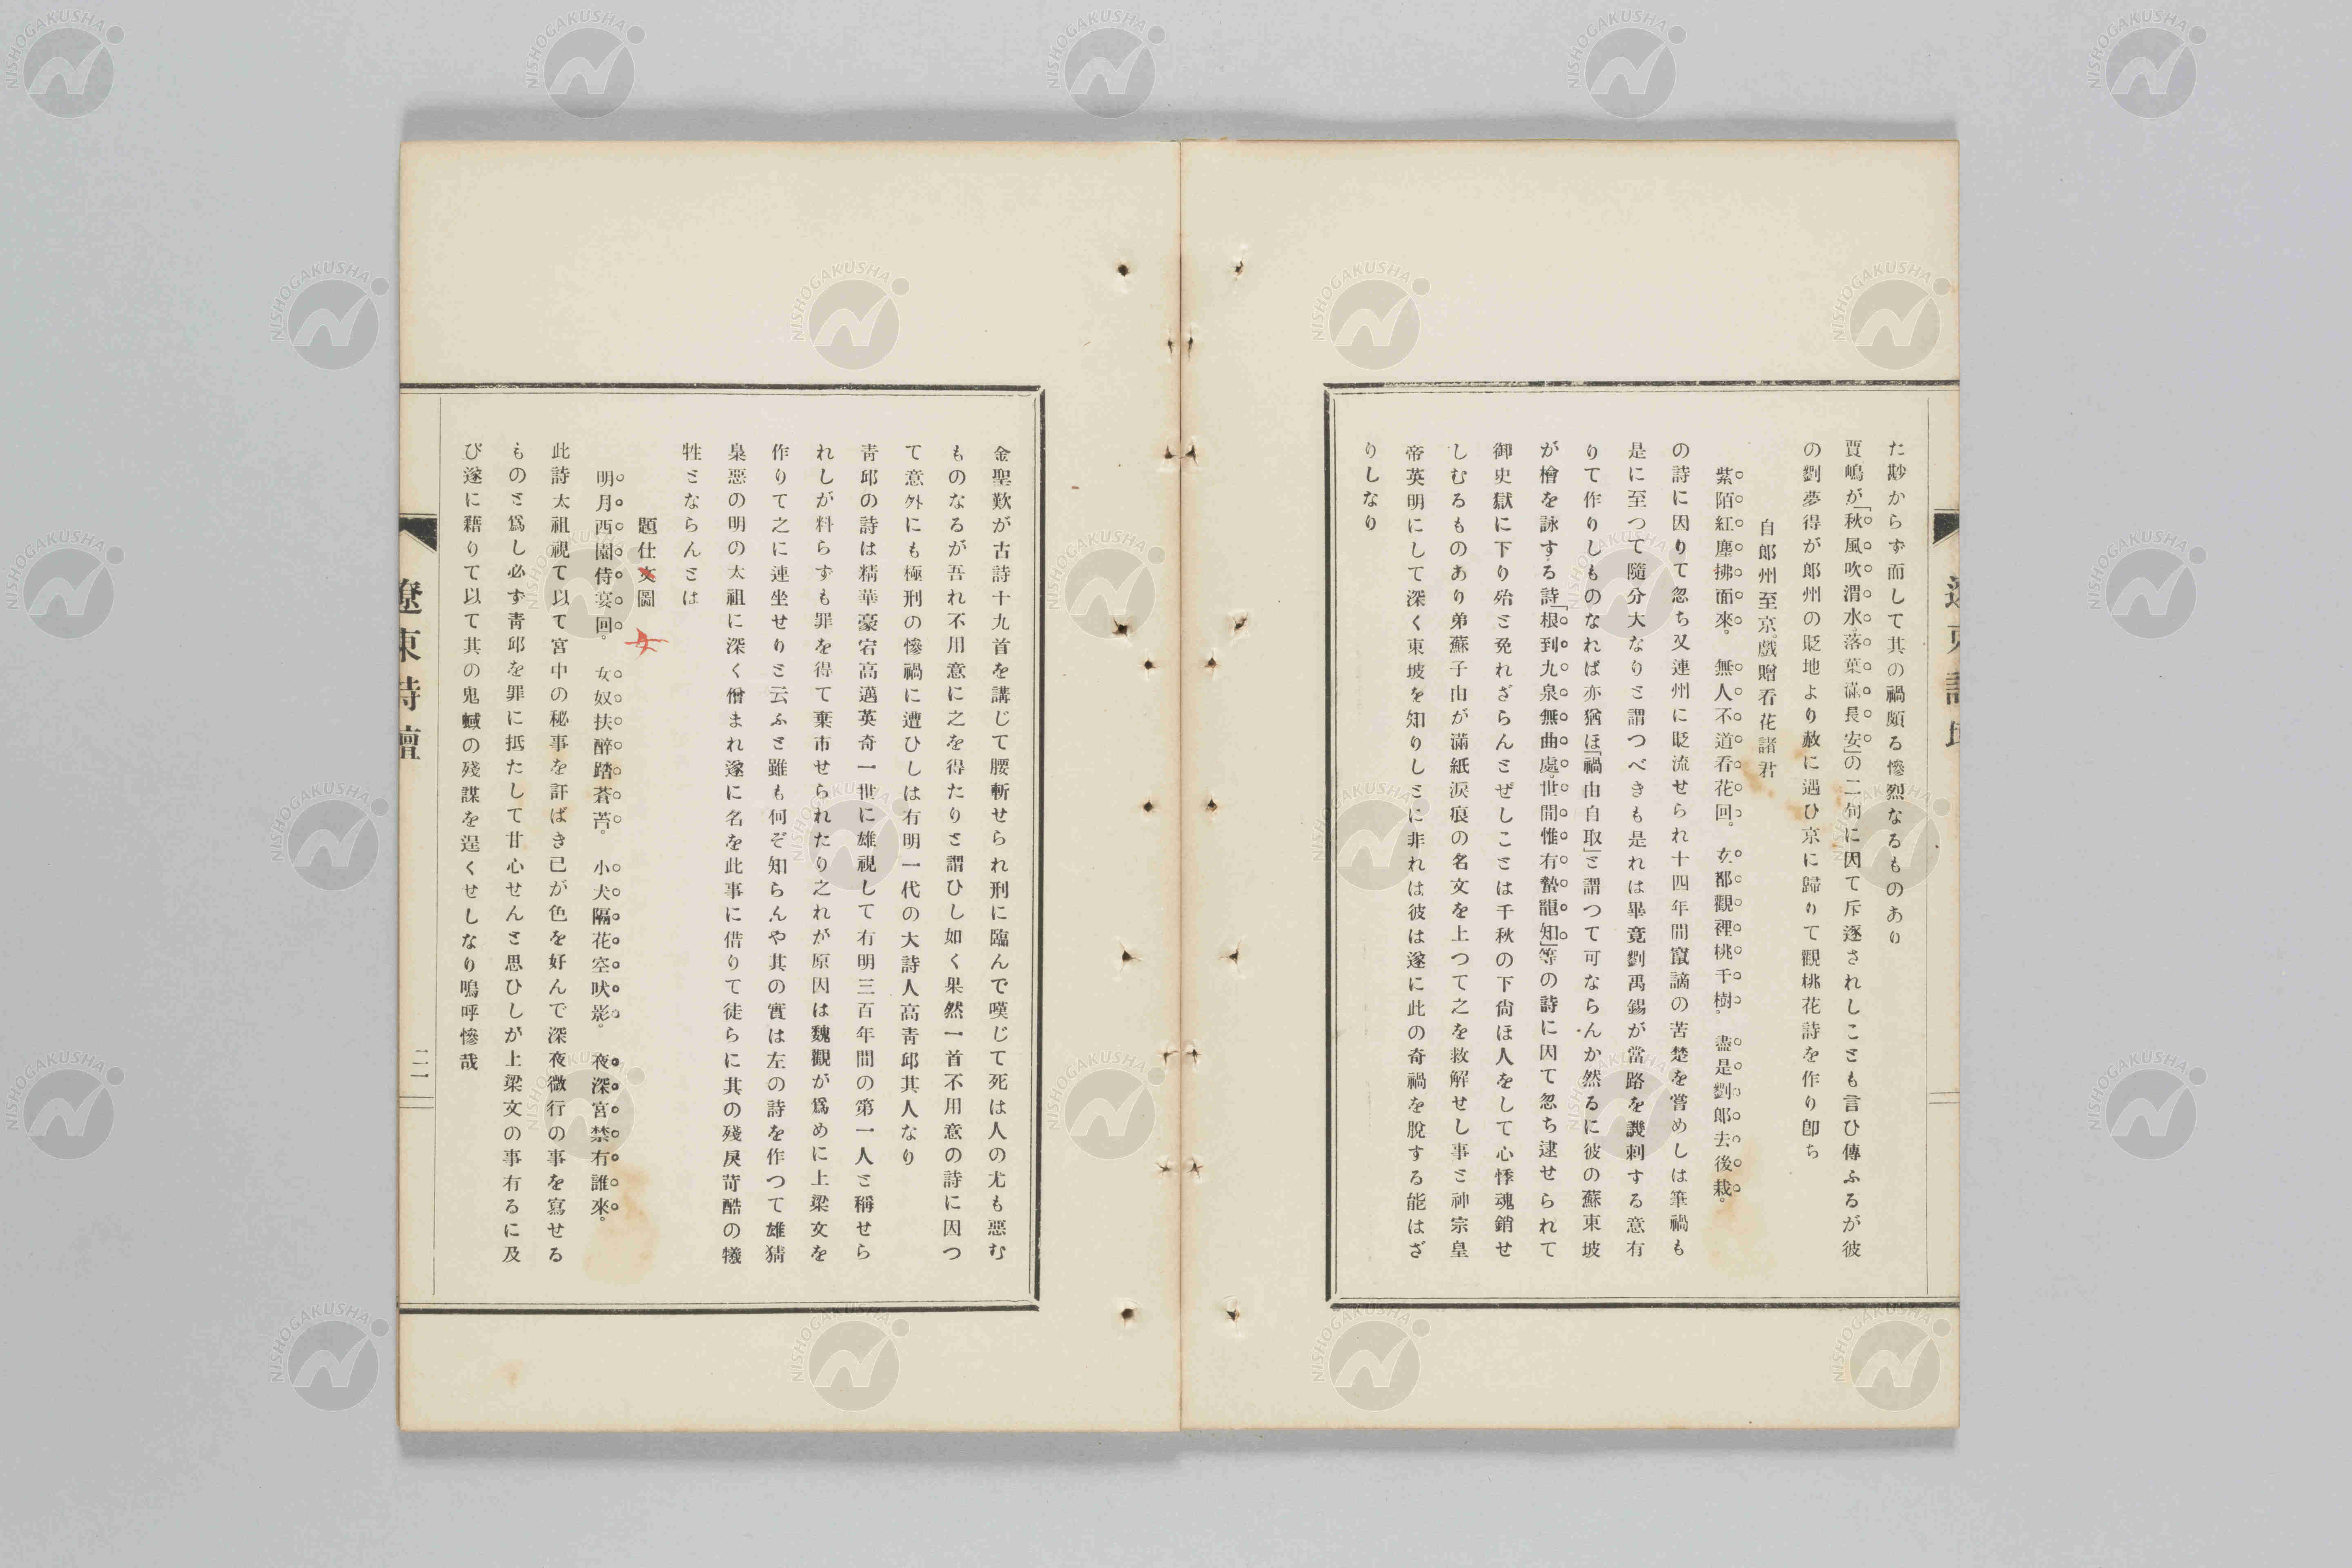 た尠からず而して其の禍頗る慘烈なるものあり
賈嶋が「秋風吹渭水。落葉滿長安」の二句に因て斥逐されしことも言ひ傳ふるが彼
の劉夢得が郎州の貶地より赦に遇ひ京に歸りて觀桃花詩を作り卽ち
自郎州至京。戲贈看花諸君
紫陌紅塵拂面來。無人不道看花回。玄都觀裡桃千樹。盡是劉郎去後栽。
の詩に因りて忽ち又連州に貶流せられ十四年間竄謫の苦楚を嘗めしは筆禍も
是に至つて隨分大なりと謂つべきも是れは畢竟劉禹錫が當路を譏刺する意有
りて作りしものなれば亦猶ほ「禍由自取」と謂つて可ならんか然るに彼の蘇東坡
が檜を詠する詩「根到九泉無曲處。世間惟有蟄龍知」等の詩に因て忽ち逮せられて
御史獄に下り殆と免れざらんとぜしことは千秋の下尙ほ人をして心悸魂銷せ
しむるものあり弟蘇子由が滿紙淚痕の名文を上つて之を救解せし事と神宗皇
帝英明にして深く東坡を知りしとに非れは彼は遂に此の奇禍を脫する能はざ
りしなり
金聖歎が古詩十九首を講じて腰斬せられ刑に臨んで嘆じて死は人の尤も惡む
ものなるが吾れ不用意に之を得たりと謂ひし如く果然一首不用意の詩に因つ
て意外にも極刑の慘禍に遭ひしは有明一代の大詩人高靑邱其人なり
靑邱の詩は精華豪宕高邁英奇一世に雄視して有明三百年間の第一人と稱せら
れしが料らずも罪を得て棄市せられたり之れが原因は魏觀が爲めに上梁文を
作りて之に連坐せりと云ふと雖も何ぞ知らんや其の實は左の詩を作つて雄猜
梟惡の明の太祖に深く憎まれ遂に名を此事に借りて徒らに其の殘戾苛酷の犧
牲とならんとは
題仕文圖 女
明月西園侍宴回。女奴扶醉踏蒼苔。小犬隔花空吠影。夜深宮禁有誰來。
此詩太祖視て以て宮中の秘事を訐ばき已が色を好んで深夜微行の事を寫せる
ものと爲し必ず靑邱を罪に抵たして甘心せんと思ひしが上梁文の事有るに及
び遂に藉りて以て其の鬼蜮の殘謀を逞くせしなり嗚呼慘哉
遼東詩壇
二一